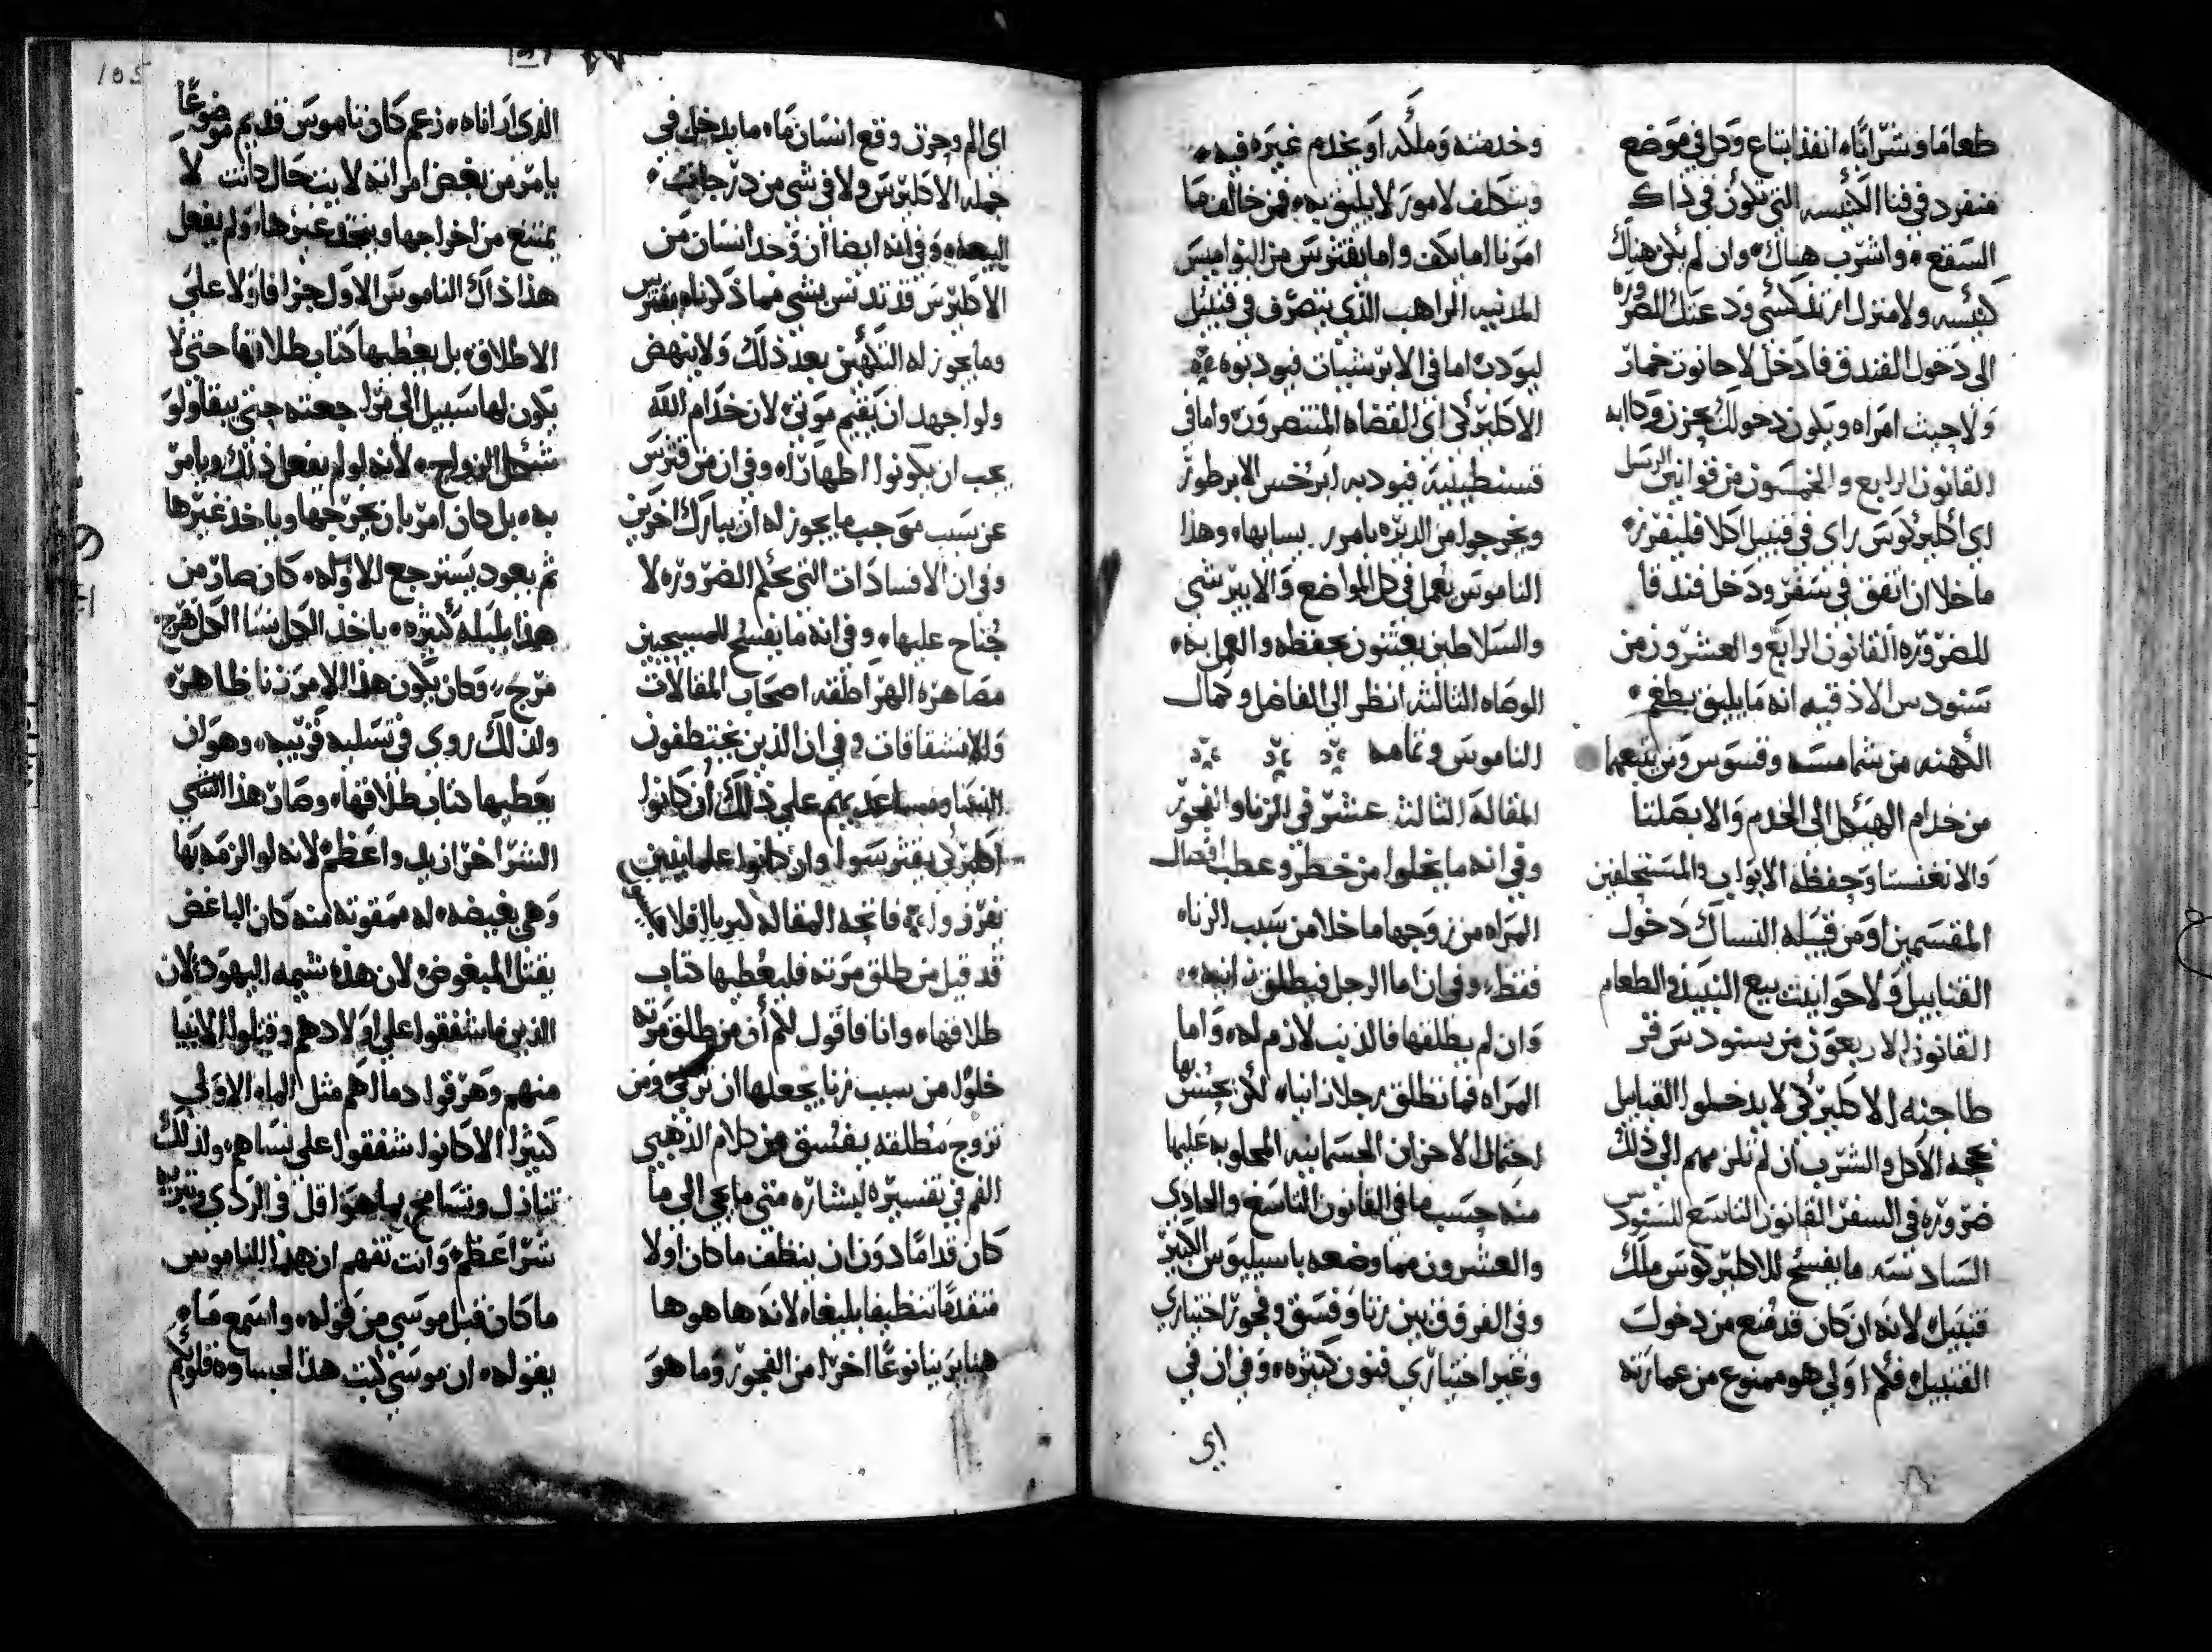 طعاما وشرابًا انفذ ابتاع وكل في موضع
منفرد في فنا الكنيسه التي تكون في ذاك
السقع واشرب هناك وان لم يكن هناك
كنيسه ولا منزل ارتدكسي ودعتك الضروره
الى دخول الفندق فادخل لا حانوت خمار
ولا حيث امراه ويكون دخولك بحزن وكابه
القانون الرابع والخمسون من قوانين الرسل
اي اكليركوس راي في قنبيل اكلا فليفرز
ما خلا ان اتفق في سفر ودخل فندقا
للضروره القانون الرابع والعشرون من
سنودس الاذقيه انه ما يليق بطغم
الكهنه من شمامسه وقسوس ومن يتبعهما
من خدام الهيكل الى الخدم والابصلتا
والانغنسا وحفظه الابواب والمستحلفين
المقسمين او من قبيله النساك دخول
القنابيل ولا حوانيت بيع النبيذ والطعام
القانون الاربعون من سنودس قر
طاجنه الاكليركي لا يدخلوا القنابيل
بحجه الاكل والشرب ان لم تلزمهم الى ذلك
ضروره في السفر القانون التاسع للسنودس
السادسه ما يفسح للاكليركوس ملك
قنبيل لانه ان كان قد مُنع من دخول
القنبيل فكم اولي هو ممنوع من عمارته
وخدمته وملكه او يخدم غيره فيه
ويتكلف لامور لا يليق به فمن خالف ما
امرنا اما يكف واما يقترس من النواميس
المدنيه الراهب الذي يتصرف في قنبيل
ليودب اما في الابرشيات فيودبوه
الاكليركي اي القضاه المنتصرون واما في
قسنطينية فيودبه ابرخس الابرطور
ويخرجوا من الديره بامر وهذا
الناموس يعمل في كل المواضع والابيرشي
والسلاطين يعتنون بحفظه والعمل به
الوصاه الثالثه انظر الى الفاضل وكمال
الناموس وتمامه
المقالة الثالث عشر في الزنا والفجور
وفي انه ما يخلوا من خطر وعطب انفصال
المراه من زوجها ما خلا من سبب الزناه
فقط وفي ان اما الرجل فيطلق زانيه
وان لم يطلقها فالذنب لازم له واما
المراه فما تطلق رجلا زانياه لكن يحسن بها
احتمال الاحزان الجسمانيه المجلوبه عليها
منه حسب ما في القانون التاسع والحادي
والعشرون مما وضعه باسيليوس الكبير
وفي الفرق بين زنا وفسق وفجور اختياري
وغير اختياري فنون كثيره وفي ان في
اي
اي الم وحزن وقع انسان ما ما يدخل في
جمله الاكليرس ولا في شي من درجات
البيعه وفي انه ايضا ان وُجد انسان من
الاكليرس قد تدنس بشي مما ذكرناه يقترس
وما يجوز له التكهين بعد ذلك ولا ينهض
ولو اجهد ان يقيم موتى لان خدام الله
يجب ان يكونوا اطهارًا وفي ان من قترس
عن سبب موجب ما يجوز له ان يبارك اخرين
وفي ان الافسادات التي بحكم الضروره لا
جُناح عليها وفي انه ما يفسح للمسيحيين
مصاهرة الهراطقه اصحاب المقالات
والانشقاقات وفي ان الذين يختطفون
النسا ومساعديهم على ذلك ان كانوا
اكليركي يقترسوا وان كانوا علمانيين
تفرزوا فاتحه المقاله
قد قيل من طلق مرته فليعُطيها كتاب
طلاقها وانا فاقول لكم أن من طلق مرته
خلوًا من سبب زنا يجعلها ان تزني ومن
تزوج مُطلقه يفسق من كلام الذهبي
الفم في تفسيره لبشاره متي ما يجي الى ما
كان قدامًا دون ان ينظف ما كان اولا
متقدمًا تنظيفا بليغاه لانه ها هو ها
هنا يرينا نوعًا اخرا من الفجور وما هو
الذي ارانا زعم كان ناموس قديم موضوعًا
يامر من يغض امراته لاييت حال كانت لا
يمتنع من اخراجها وياخذ غيرها ولم يفعل
هذا ذاك الناموس الاول جزافا ولا على
الاطلاق بل يعُطيها كتاب طلاقها حتى لا
يكون لها سبيل الى مراجعته حتى يبقا ولو
شكل الزواج لانه لو لم يفعل ذلك ويامر
به بل كان امر بان يخرجها وياخذ غيرها
ثم يعود يسترجع الاوله كان صار من
هذا بلبله كثيره ياخذ الكل نسا الكل هرج
مرج وكان يكون هذا الامر زنا ظاهره
ولذلك روي في تسليه قريبه وهو ان
يعطيها كتاب طلاقها وصار هذا الشي
الشر اخر ازيد واعظم لانه لو الزمه بها
وهي بغيضه له ممقوته منه كان الباغض
يقتل المبغوض لان هذا شيمه اليهود لان
الذين ما شفقوا على اولادهم وقتلوا الانبيا
منهم وهرقوا دمالهم مثل الماء الاولي
كثيرا الا كانوا شفقوا على نساهم ولذلك
تنازل وتسامح بما هو اقل في الردي
شرا اعظم وانت تفهم ان هذا الناموس
ما كان قبل موسي من قوله واسمع ماه
يقوله ان موسي كتب هذا لجساوه قلوبكم